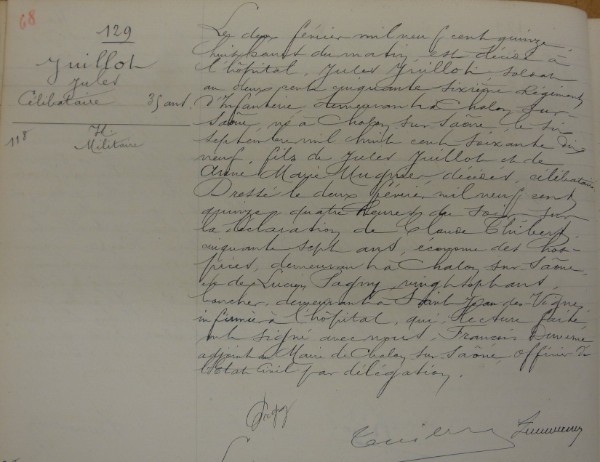 68
129
Juillot
Jules
Célibataire 35 ans
118
H.
Militaire
Le deux février mil neuf cent quinze,
huit heures du matin, est décédé à
l'hôpital, Jules Juillot, soldat
au deux cent cinquante sixième Régiment
d'Infanterie, demeurant à Chalon sur
Saône, né à Chalon sur Saône, le six
septembre mil huit cent soixante dix
neuf, fils de Jules Juillot et de
Marie Mugnier, décédés, célibataire
Dressé le deux février mil neuf cent
quinze, quatre heures du soir, sur
la déclaration de Claude Thibert
cinquante sept ans, économe des hos-
pices, demeurant à Chalon sur Saône,
et de Lucien Pagny, vingt sept ans,
demeurant à Saint Jean des Vignes,
à l'hôpital, qui, lecture faite,
ont signé avec nous, François
adjoint au Maire de Chalon sur Saône, officier de
l'Etat Civil par délégation.